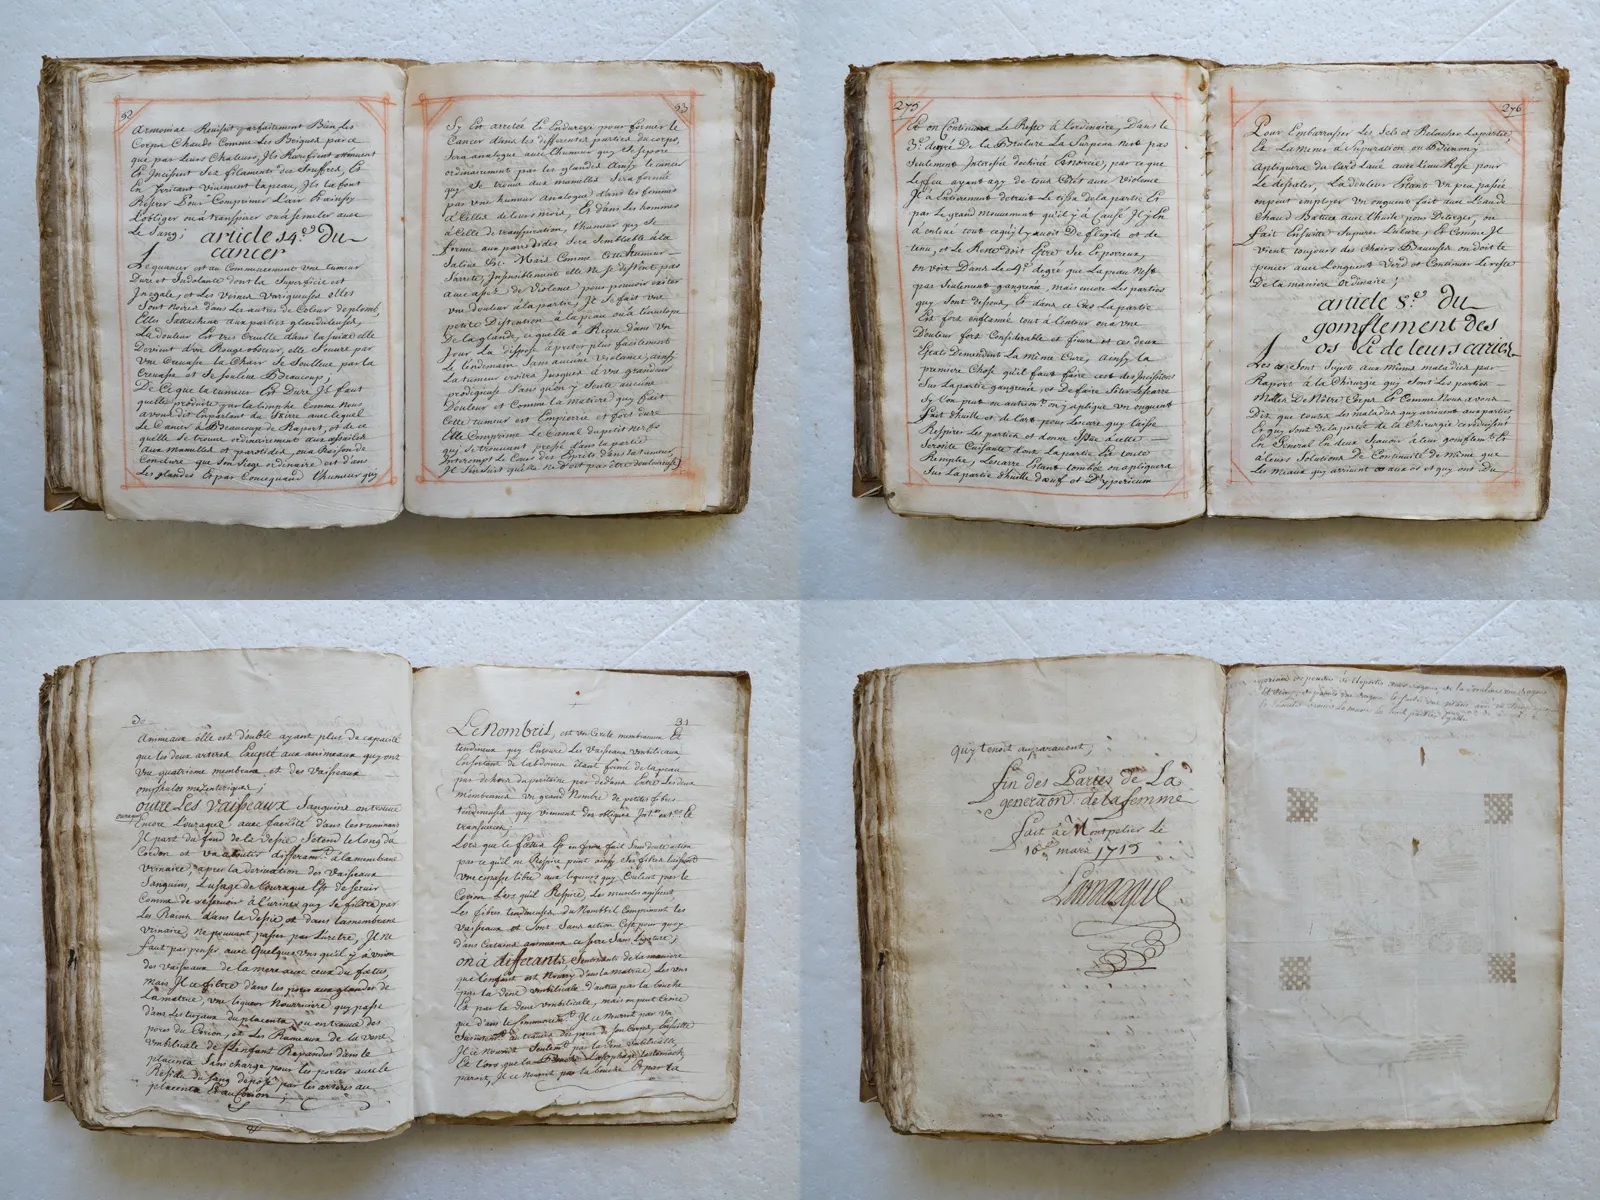 52
Armoniac Reusist parfaitement Bien Les
Corps Chauds Comme Les Briques par ce
que par Leurs Chaleurs, Ils Rarefient attenuent
Et Incisent Ses filaments des Souffres, Et
En Irritant Vivement La peau, Ils la font
Reserer Pour Comprimer L'air Et ainsy
L'obliger ou à transpirer ou à circuler avec
Le Sang;
article 14.e du
cancer
Le cancer est au Commencement une tumeur
Dure et Indolante dont la Superficie est
Inegale, et Les Veines Variqueuses elles
Sont noires dans Les autres de Coleur de plomb,
Elles Sattachent aux parties glanduleuses,
La douleur Est tres Cruelle dans la suite elle
Devient d'un Rouge obscur, elle S'ouvre par
Une Crevasse Le Chair Se Soulleve par la
Crevasse et Se souleve Beaucoup;
De Ce que la tumeur Est Dure Il faut
quelle produite par la limphe Comme Nous
avons dit En parlant du Skirre avec lequel
Le Cancer à Beaucoup de Raport, et de ce
quelle se trouve ordinairement aux aisselles
aux mamelles et parotides, on a Raison de
Conclure que Son Siege ordinaire est dans
Les glandes Et par Consequand L'humeur quy
53
Sy Est arretée Et Endurcye pour former Le
Cancer dans les differentes parties du corps,
Sera analogue avec L'humeur quy Se Separe
ordinairement par les glandes Ainsy le cancer
quy Se trouve aux mamelles Sera formé
par une humeur Analogue dans les femmes
à Celles de leurs mois, Et dans les hommes
à Celle de transpiration, L'humeur quy se
forme aux parotides Sera Semblable à la
Salive &c. Mais Comme Cette tumeur
Sarrete Insensiblement elle ne se distent pas
avec asses de Violence pour pouvoir exiter
une douleur à la partie, Il Se fait une
petite Distention à la peau ou à l'envelope
De la glande, ce quelle à Reçeu dans Un
Jour La dispose à preter plus facilement
Le lendemain Sans aucune Violance, ainsy
La tumeur croitra Jusques à une grandeur
prodigieuse Sans qu'on y Sente aucune
Douleur et Comme la matiere quy fait
Cette tumeur est Empierrie et fort dure
Elle Comprime Le Canal du petit nerbs
quy Se trouvant pressé dans la partie
Interromps Le Cours des Esprits dans la tumeur,
Il S'ensuit quelle ne Doit pas être douloureuse;
275
Et on Continuera Le Reste à L'ordinaire, Dans le
3.e degré De la Brulure La Surpeau Nest pas
Seulement Interessée dechirée Ecorcée, par ce que
Le feu ayant agy de tous Cotés avec Violence
Il à Entierement detruit Le tissu de la partie Et
par Le grand Mouvement qu'il y à Causé Il y En
à enleve tout ce quy Luy avoit De fluyde et de
tenu, et Le Reste doit Estre Sec Et poreux,
on voit Dans Le 4.e degré que La peau Nest
pas Seulement gangrenée, mais encore Les parties
quy Sont dessous, Et dans ce Cas La partie
Est fort enflamée tout à L'entour on a Une
Douleur fort Considerable et fievre et ces deux
Etats Demandent La mème Cure, ainsy La
premiere Chose qu'il faut faire cest des Incisions
Sur La partie gangrenée, et De faire Oter L'escarre
Sy L'on peut Ne autrem.t on y aplique Un onguent
fait d'huille et de Cart pour L'escare quy laisse
Respirer Les parties et donne Issue à cette
Serosité Cuisante dont La partie Est toute
Remplie, L'escarre Estant tombée on apliquera
Sur La partie L'huille d'œuf et D'hypericum
276
Pour Embarrasser Les Sels et Relacher La partie
Et La Mener à Supuration ou Bien on y
Apliquera du Lard Lavé avec L'eau Rose pour
Le dessaler, La douleur Estant Un peu passée
on pout employer Un onguent fait avec L'eau de
Chaud Battue avec L'huile pour Deterger, on
fait Ensuitte Supurer L'ulcere, Et Comme Il
vient toujours des Chairs Baveuses on doit Le
penser avec L'onguent Verd et Continuer Le reste
De la maniere ordinaire;
article 8.e du
gomflement des
os Et de leurs caries
Les os Sont Sujets aux mèmes maladies par
Raport à la Chirurgie quy Sont Les parties
Molles De Nôtre Corps Et Comme Nous avons
Dit que toutes Les maladies quy arrivent aux parties
Et quy sont de la portée de la Chirurgie Se reduisent
En General En deux Scavoir à leur gomflem.t Et
à leurs Solutions de Continuité de même que
Les maux quy arrivent aux os et quy ont du
30
Animeaux elle est double ayant plus de capacité
que les deux arteres Excepté aux animeaux quy ont
Une quatrieme membrane et des Vaisseaux
omphalos mezenteriques;
outre Les vaisseaux Sanguins on trouve
ouraque
Encore L'ouraque, avec facilité dans Les ruminans
Il part du fond de la Vessie S'etend le long du
Cordon et Va aboutir differam.t à la membrane
Urinaire, apres la derivation des Vaisseaux
Sanguins, L'usage de L'ouraque Est de servir
Comme de reservoir à L'urine quy se filtre par
Les Reins dans la Vessie et dans La membrane
Urinaire, ne pouvant passer par L'uretre, Il ne
faut pas penser avec Quelques Uns qu'il y à Union
des Vaisseaux de la mere avec ceux du fœtus,
mais Il ce filtre dans les pores aux glandes de
La matrice, une liqueur Nourriciere quy passe
dans Les tuyaux du placenta, ou on trouve des
pores du Corion, et Les Rameaux de la Vene
Umbilicale de L'enfant Rapandus dans le
placenta Sans charge pour Les porter avec le
Residu du Sang deposé par les arteres au
placenta Et au Corion;
31
Le Nombril, est un Cercle membraneux Et
tendineux quy Entoure Les Vaisseaux Umbilicaux
En Sortant de L'abdomen étant formé de la peau
par dehors du peritoine per dedans Entre Les deux
membranes un grand Nombre de petites fibres
tendineuses quy viennent des obliques Int.es ext.es et le
transverses;
Lors que le fœtus Est enfermé fait Son deute action
par ce qu'il ne Respire point ainsy Ses fibres laissent
Une espasse libre aux liqueurs quy Coulent par le
Cordon Lors qu'il Respire, Les muscles agissent
Les fibres tendineuses du Nombril Compriment les
Vaisseaux et Sont Sans action Cest pour quoy
dans Certains animeaux ce fere Sans Ligature;
on à differants Sentiments de la maniere
que L'enfant est Nourry dans la Matrice Les uns
par la Vene Umbilicale d'autres par la bouche
Et par la Vene Umbilicale, mais on peut Croire
que dans Le Commencem.t Il ce nourrit par un
Suintem.t au travers des pores de Son Corps, Ensuitte
Il ce nourrit Seulem.t par la Vene Umbilicalle,
Et Lors que la Bouche L'esophage L'estomach
paroit, Il ce Nourrit par la bouche Et par la
quy tenoit auparavent;
fin des Parties de La
generaon de la femme
fait à Montpelier Le
18 mars 1715
Lamarque